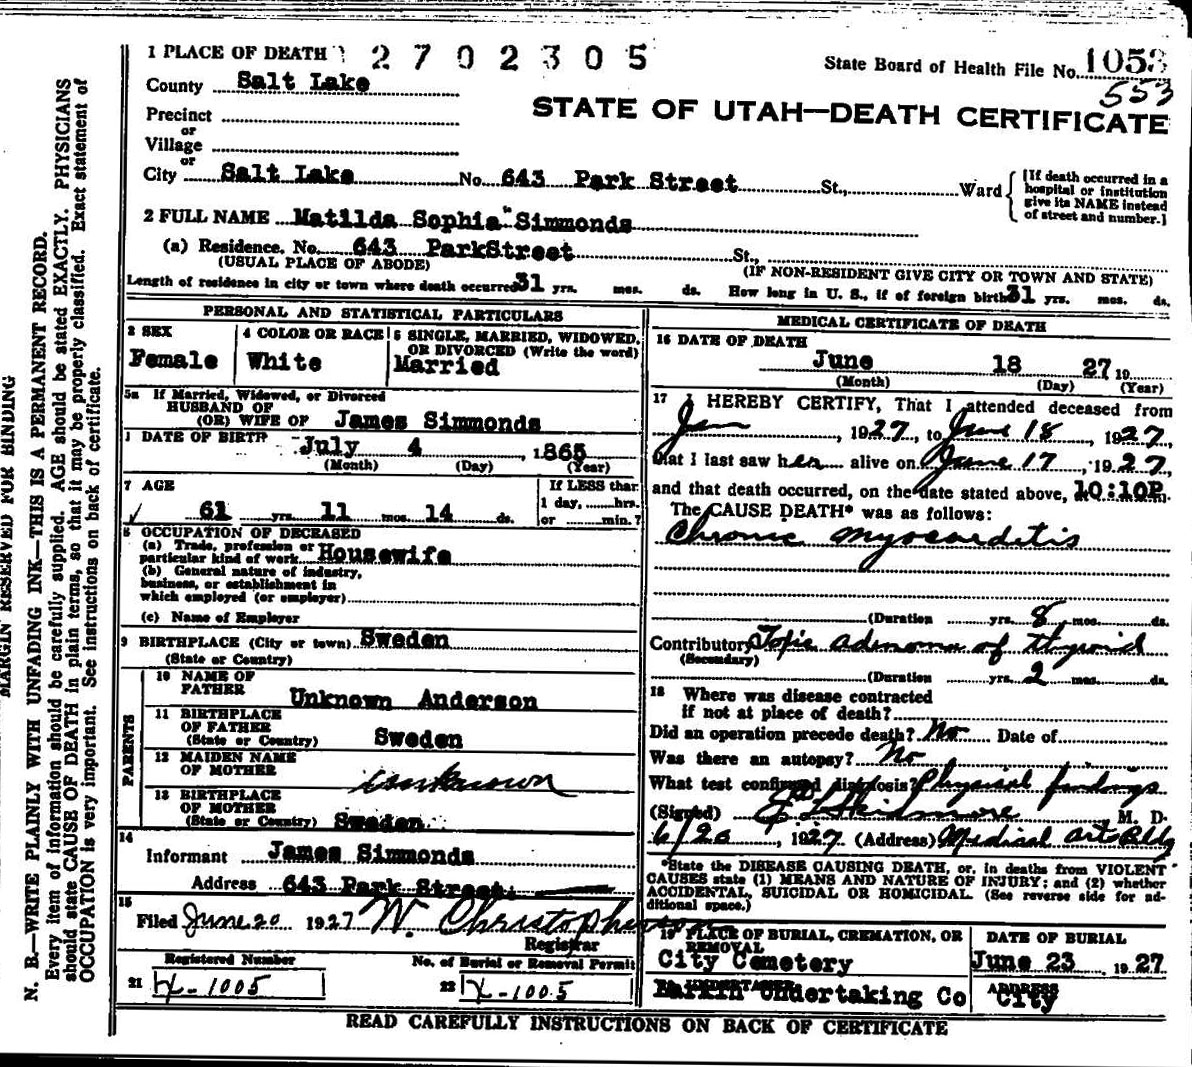 1 PLACE OF DEATH 2 7 0 2 3 0 5
State Board of Health File No. 1053
553
County Salt Lake
STATE OF UTAH—DEATH CERTIFICATE
Precinct
or
Village
or
City Salt Lake No. 643 Park Street St., Ward
[If death occurred in a hospital or institution give its NAME instead of street and number.]
2 FULL NAME Matilda Sophia Simmonds
(a) Residence. No. 643 ParkStreet St.,
(USUAL PLACE OF ABODE) (IF NON-RESIDENT GIVE CITY OR TOWN AND STATE)
Length of residence in city or town where death occurred 31 yrs. mos. ds. How long in U. S., if of foreign birth 31 yrs. mos. ds.
PERSONAL AND STATISTICAL PARTICULARS
3 SEX Female
4 COLOR OR RACE White
5 SINGLE, MARRIED, WIDOWED, OR DIVORCED (Write the word) Married
5a If Married, Widowed, or Divorced
HUSBAND OF
(OR) WIFE OF James Simmonds
DATE OF BIRTH July 4, 1865
(Month) (Day) (Year)
7 AGE 61 yrs. 11 mos. 14 ds.
If LESS than 1 day, hrs. or min.?
8 OCCUPATION OF DECEASED
(a) Trade, profession or particular kind of work Housewife
(b) General nature of industry, business, or establishment in which employed (or employer)
(c) Name of Employer
9 BIRTHPLACE (City or town) Sweden
(State or Country)
PARENTS
10 NAME OF FATHER Unknown Anderson
11 BIRTHPLACE OF FATHER (State or Country) Sweden
12 MAIDEN NAME OF MOTHER unknown
13 BIRTHPLACE OF MOTHER (State or Country) Sweden
14 Informant James Simmonds
Address 643 Park Street.
15 Filed June 20 1927 W. Christopherson
Registrar
Registered Number
21 1005
No. of Burial or Removal Permit
22 1005
MEDICAL CERTIFICATE OF DEATH
16 DATE OF DEATH
June 18 27 19
(Month) (Day) (Year)
17 I HEREBY CERTIFY, That I attended deceased from
Jan, 1927, to June 18, 1927,
that I last saw her alive on June 17, 1927,
and that death occurred, on the date stated above, 10:10P m.
The CAUSE DEATH* was as follows:
Chronic Myocarditis
(Duration yrs. 8 mos. ds.
Contributory Toxic adenoma of thyroid
(Secondary)
(Duration yrs. 2 mos. ds.
18 Where was disease contracted
if not at place of death?
Did an operation precede death? No Date of
Was there an autopsy? No
What test confirmed diagnosis? Physical findings
(Signed) E L Skidmore, M. D.
6/20, 1927 (Address) Medical Arts Bldg
*State the DISEASE CAUSING DEATH, or, in deaths from VIOLENT
CAUSES state (1) MEANS AND NATURE OF INJURY; and (2) whether
ACCIDENTAL, SUICIDAL OR HOMICIDAL. (See reverse side for additional space.)
19 PLACE OF BURIAL, CREMATION, OR REMOVAL
City Cemetery
DATE OF BURIAL
June 23, 1927
UNDERTAKER
Larkin Undertaking Co
ADDRESS
City
READ CAREFULLY INSTRUCTIONS ON BACK OF CERTIFICATE
MARGIN RESERVED FOR BINDING
N. B.—WRITE PLAINLY WITH UNFADING INK—THIS IS A PERMANENT RECORD.
Every item of information should be carefully supplied. AGE should be stated EXACTLY. PHYSICIANS
should state CAUSE OF DEATH in plain terms, so that it may be properly classified. Exact statement of
OCCUPATION is very important. See instructions on back of certificate.